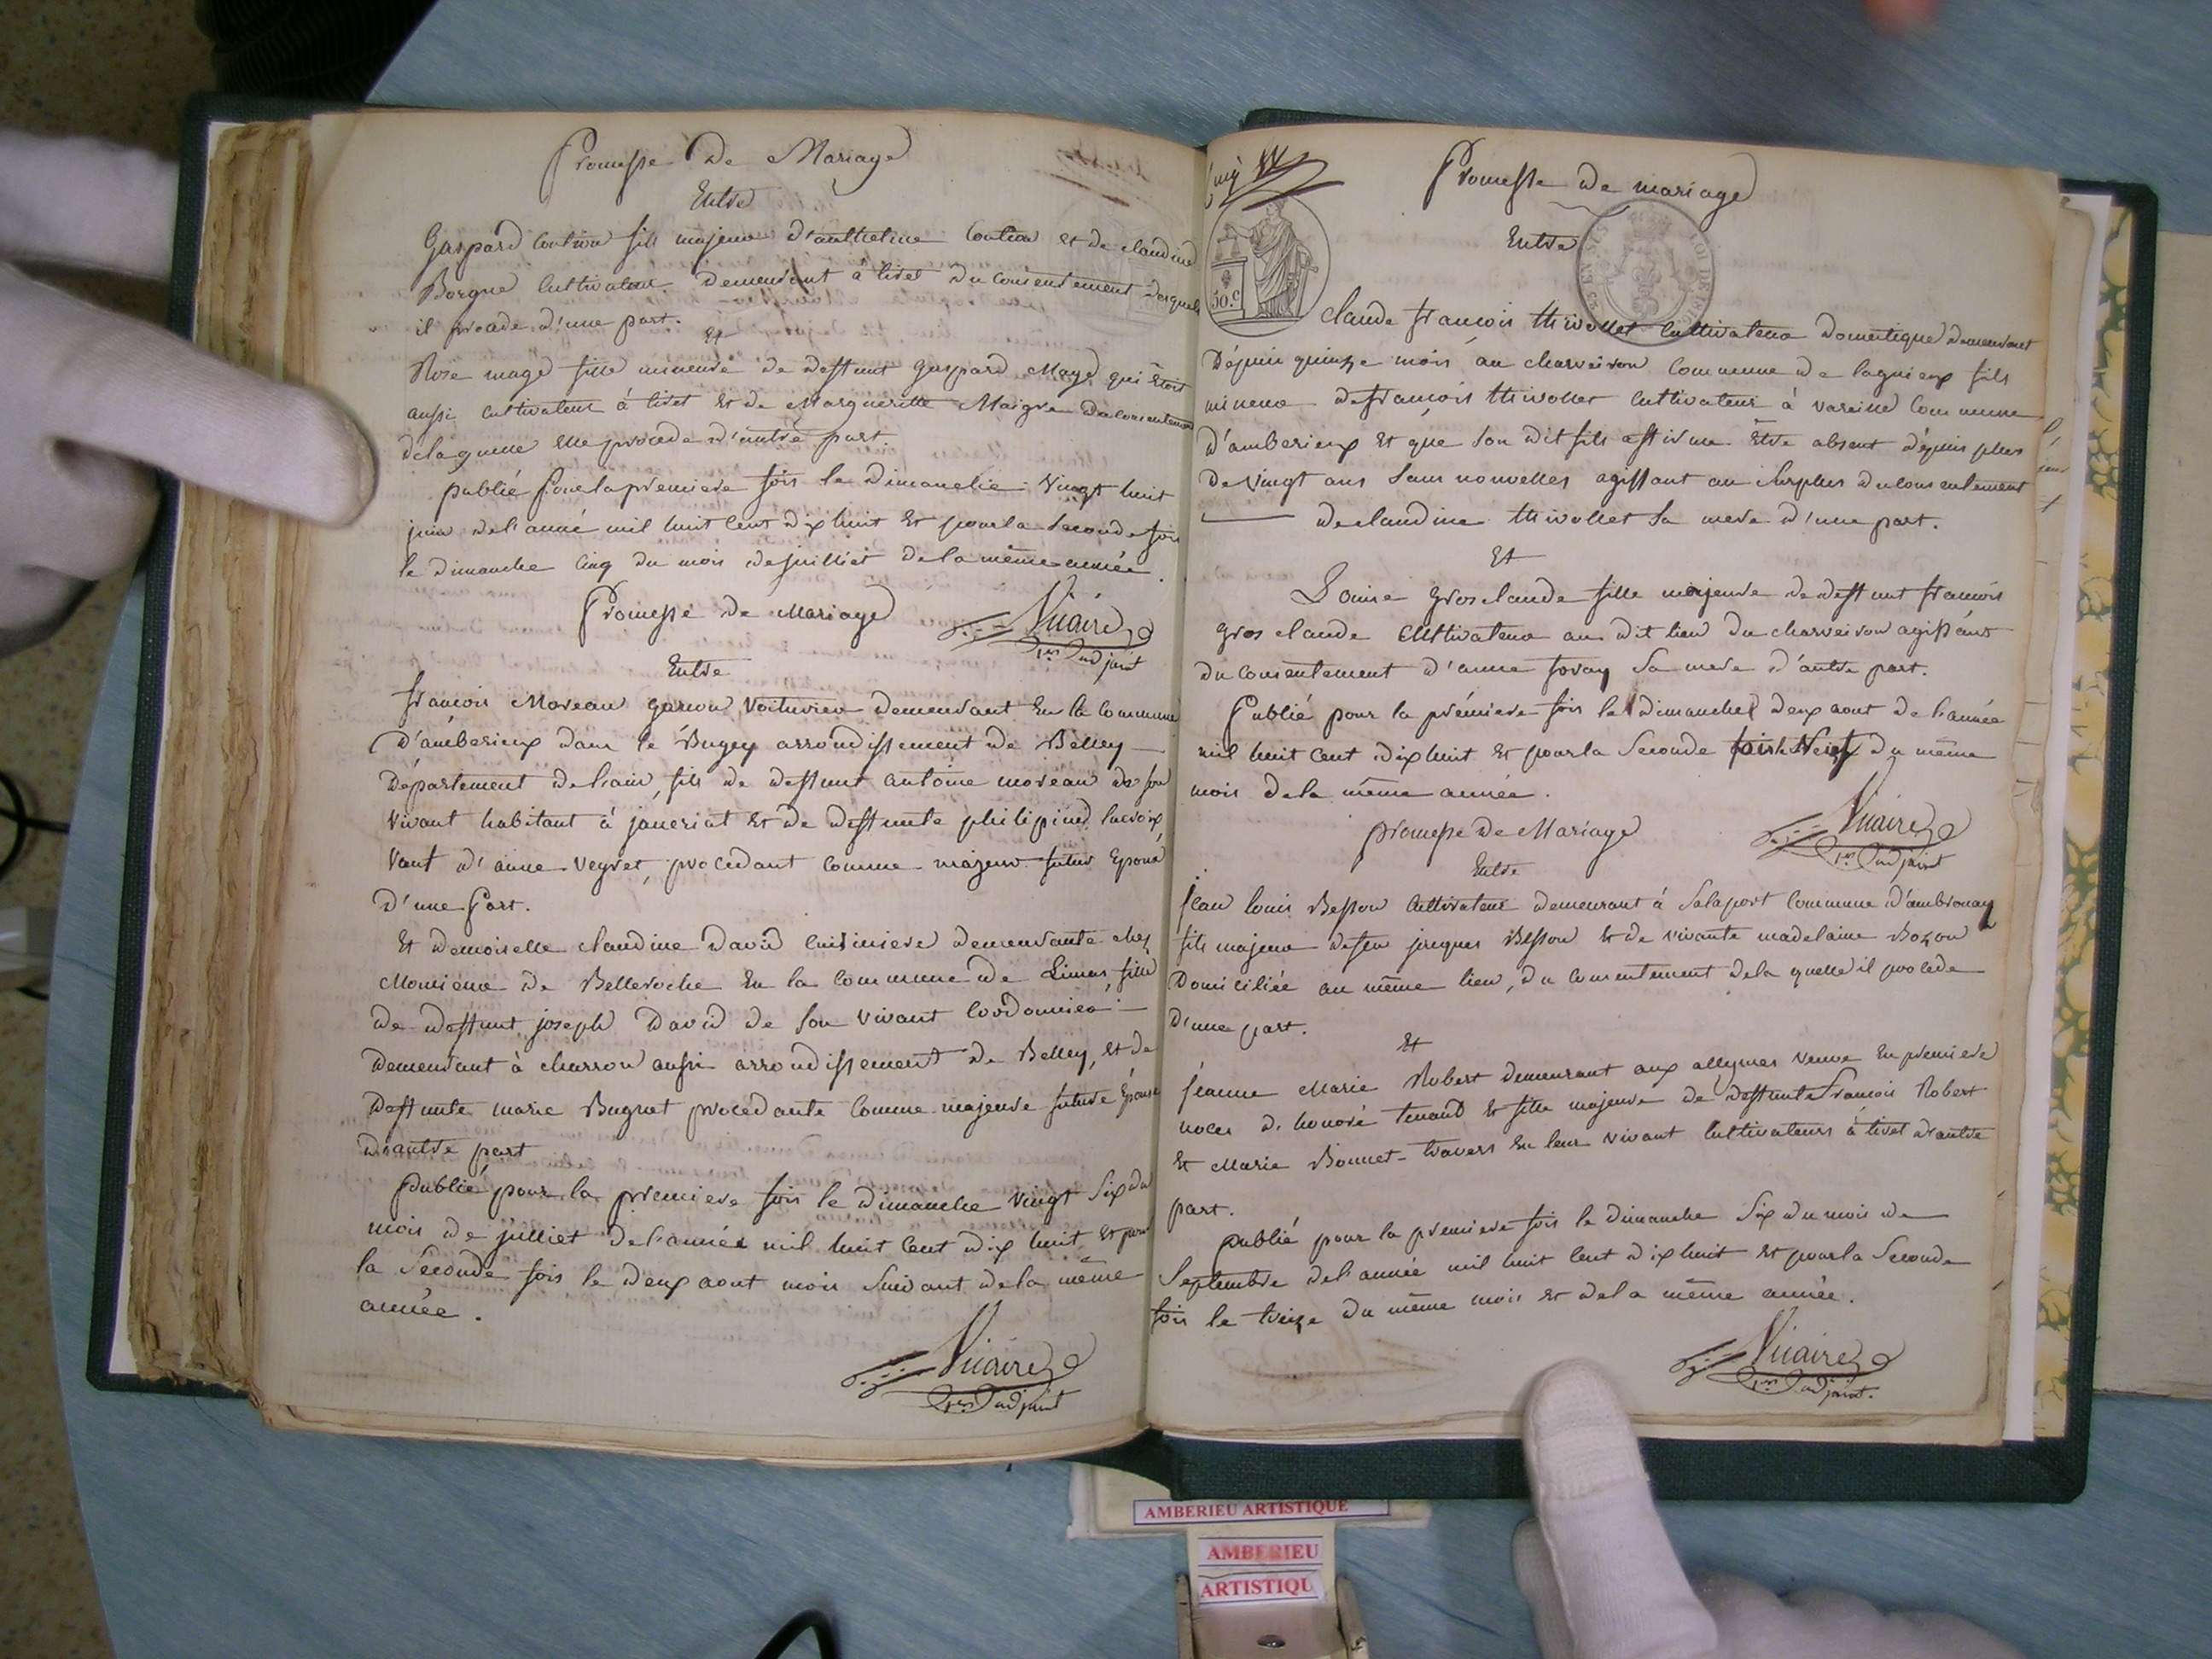 Promesse De Mariage
Entre
Gaspard Coution fils majeur d'anthelme Coution et de claudine
Borgne Cultivateur Demeurant à tiret du consentement desquels
il procade d'une part.
Et
Rose mage fille mineure de deffunt gaspard Mage qui étoit
aussi Cultivateur à tiret Et de Marguerite Maigre du consentement
de laquelle elle procede d'autre part.
publié Pour la premiere fois le Dimanche Vingt huit
juin de l'anné mil huit Cent dix huit Et pour la Seconde fois
le Dimanche Cinq du mois de juilliet de la même année.
Promesse De Mariage
Vicaire
1er adjoint
Entre
francois Moreau garcon Voiturier demeurant En la Commune
D'amberieux dans le Bugey arrondissement de Belley
Département de l'ain, fils de deffunt antoine moreau de son
Vivant habitant à janeriat Et de deffunte philipine lacroix,
Vauf d'anne Veyret, procedant comme majeur futur Epoux
D'une Part.
Et demoiselle claudine David Cuisiniere demeurante chez
Monsieur De Belleroche En la Commune de Limas, fille
de deffunt joseph David de Son Vivant Cordonnier
Demeurant à charron aussi arrondissement de Belley, et de
Deffunte marie Buguet procedante Comme majeure future Épouse
D'autre part
Publié pour la premiere fois le dimanche Vingt Six du
mois de juilliet de l'année mil huit Cent dix huit Et pour
la Seconde fois le deux aout mois Suivant de la même
année.
Vicaire
1er adjoint
Promesse de mariage
Entre
50.c
Claude francois thivollet Cultivateur Domestique Demeurant
Dépuis quinze mois au charveiron Commune de lagnieux fils
mineur de francois thivollet Cultivateur à vareille Commune
d'amberieux Et que Son dit fils affirme Etre absent dépuis plus
De Vingt ans Sans nouvelles agissant au Surplus du consentement
de claudine thivollet Sa mere d'une part.
Et
Louise gros claude fille majeure de deffunt francois
gros claude Cultivateur au dit lieu du charveiron agissant
du Consentement d'anne foray Sa mere d'autre part.
Publié pour la prémiere fois le dimanche deux aout de l'année
mil huit Cent dix huit Et pour la Seconde fois le Neuf du même
mois de la même année.
promesse De Mariage
Vicaire
1er adjoint
Entre
jean louis Besson Cultivateur demeurant à Salaport Commune d'ambronay
fils majeur de feu jacques Besson Et de vivante madelaine Bozon
Domiciliée au même lieu, du Consentement de la quelle il procede
D'une part.
Et
jeanne Marie Robert demeurant aux allymes Veuve En premiere
noces d'honoré tenand Et fille majeure de deffunts Francois Robert
Et Marie Bonnet-travers En leur vivant Cultivateurs à tiret d'autre
part.
publié pour la premiere fois le dimanche Six du mois de
Septembre de l'année mil huit Cent dix huit Et pour la Seconde
fois le treize du même mois Et de la même année.
Vicaire
1er adjoint.
AMBERIEU ARTISTIQUE
AMBERIEU
ARTISTIQU